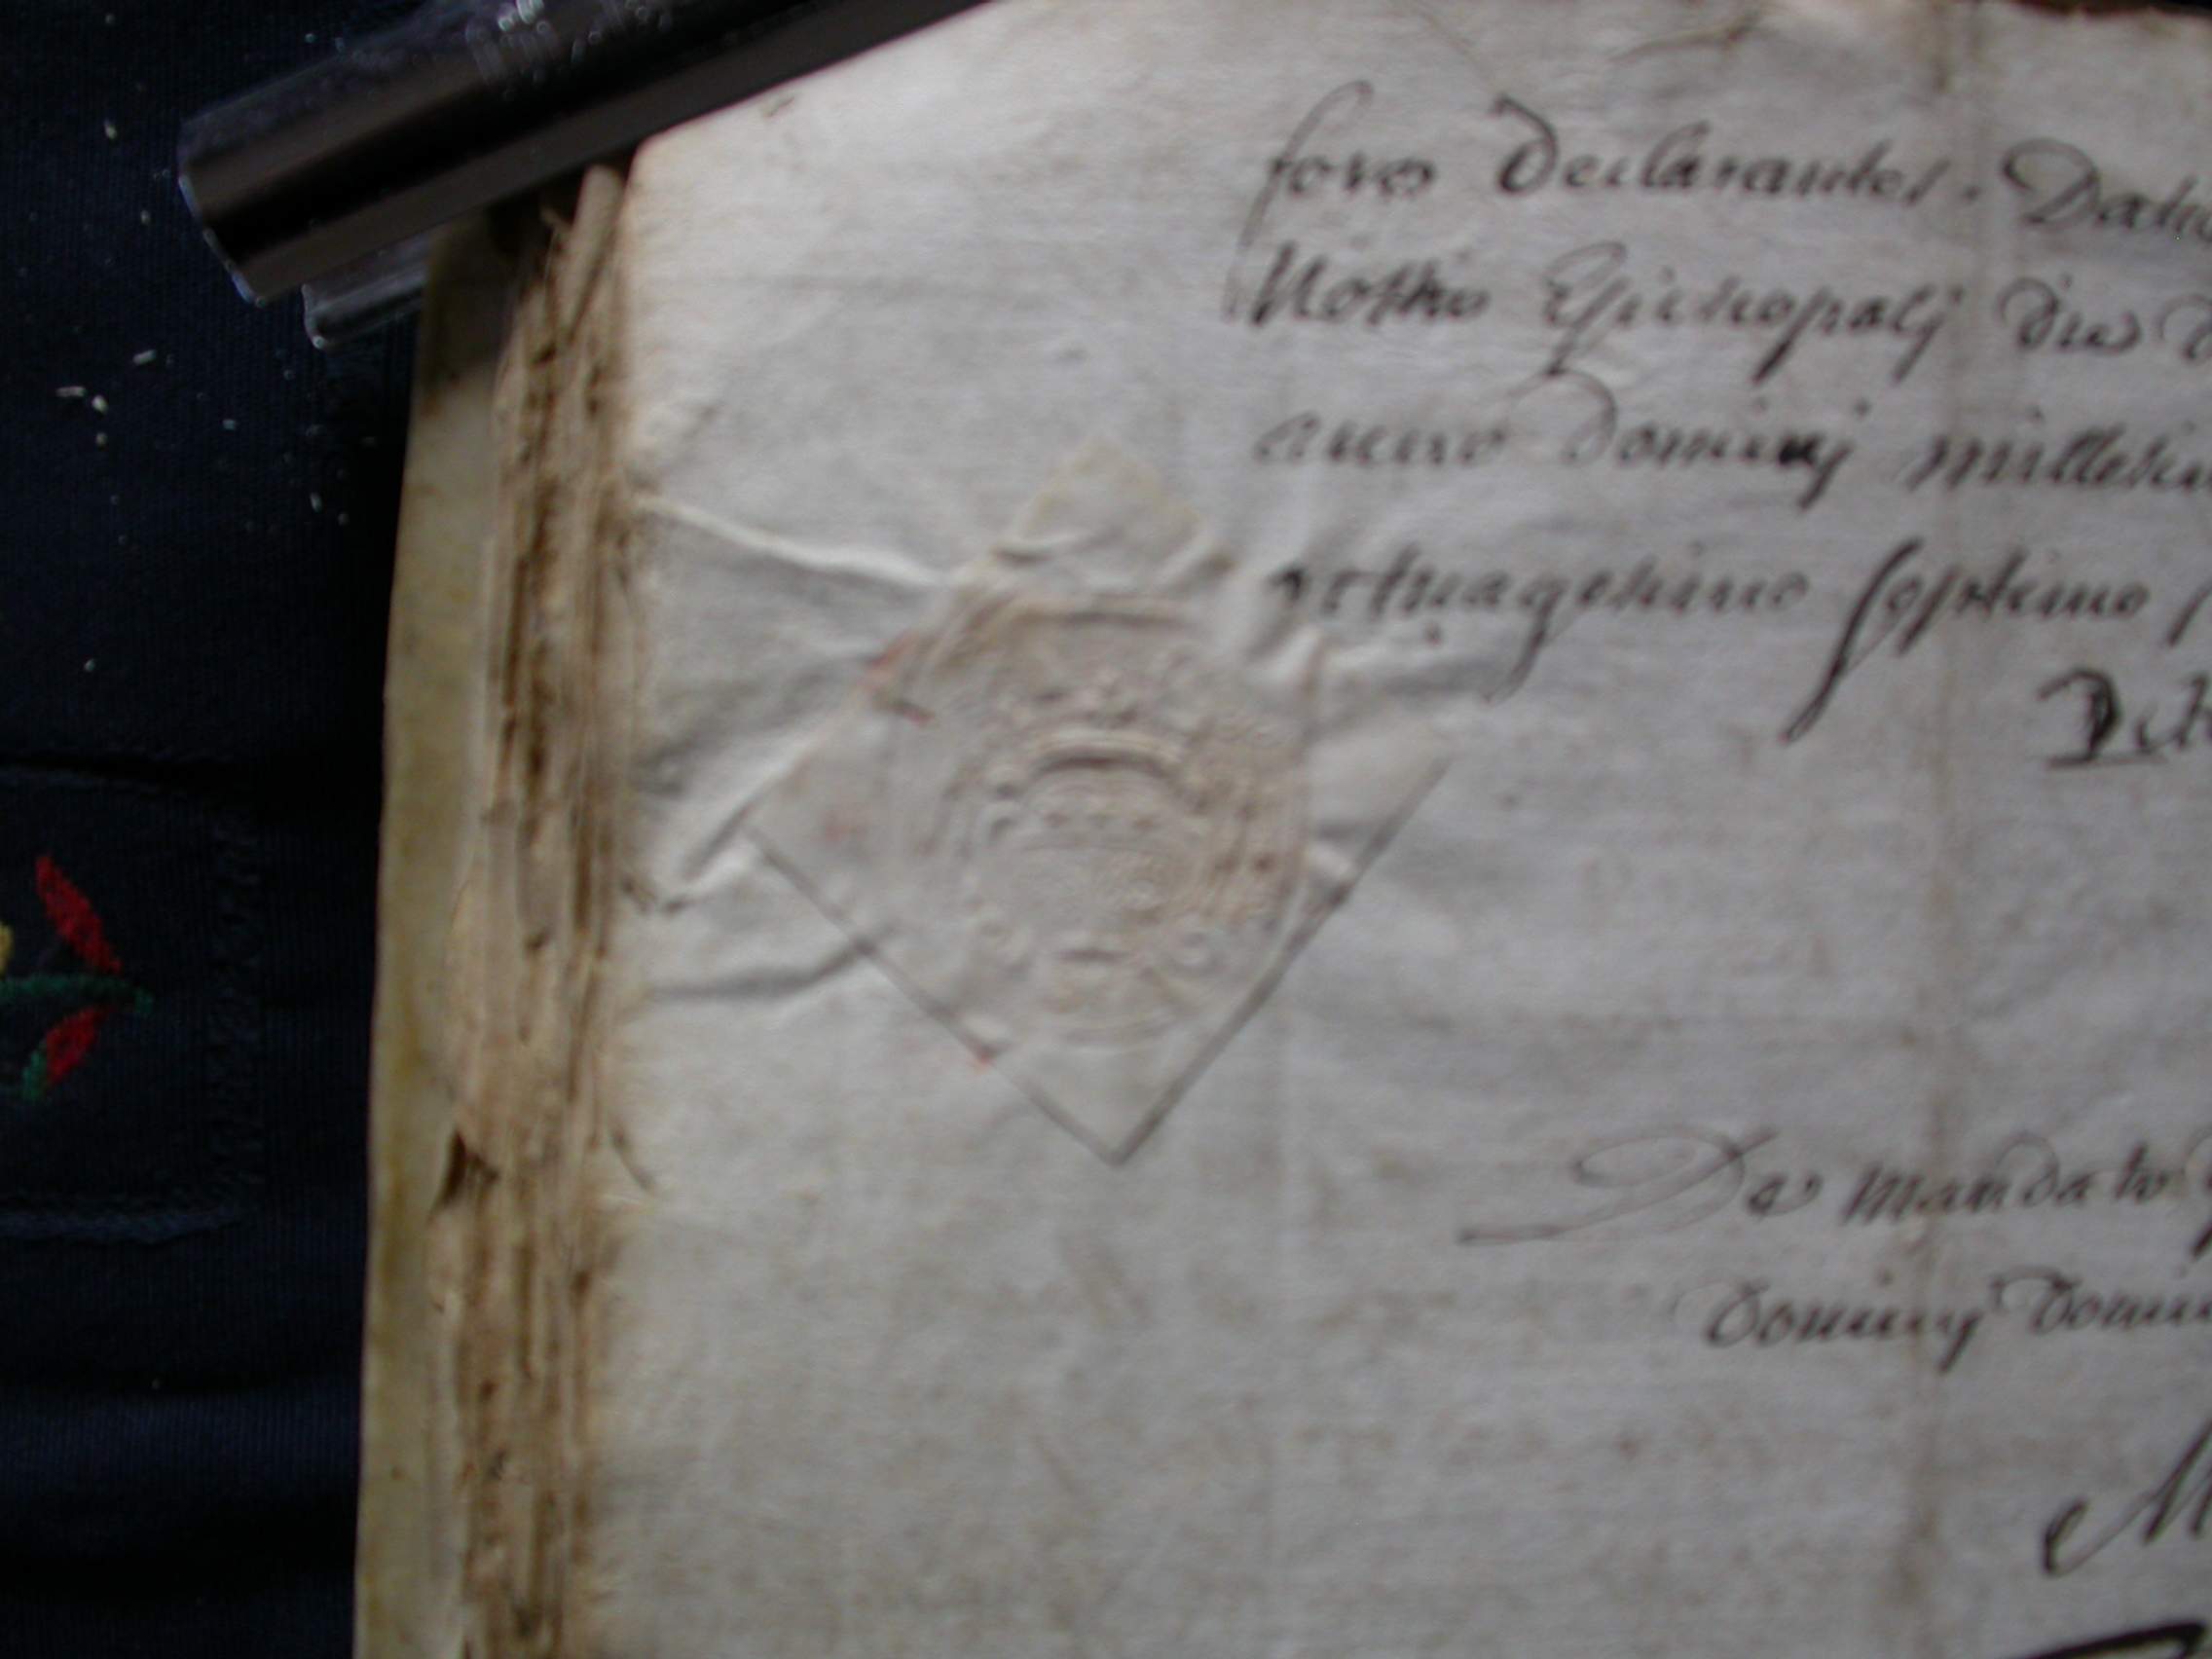 fore Declarantes. Datu
Nostro Episcopalj die d
anno Dominj millesim
octuagesimo septimo
De mandato
Dominj Domin
M